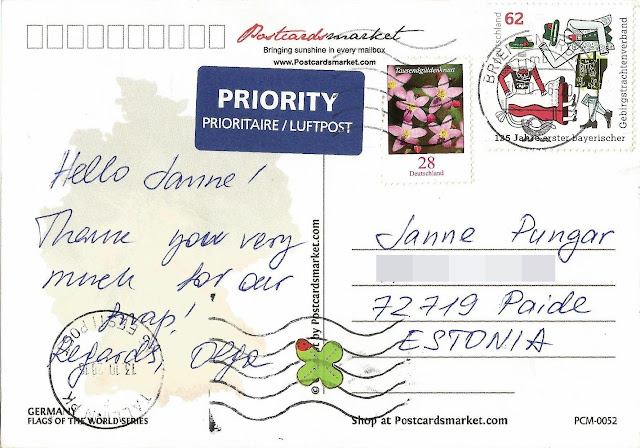 Postcardsmarket
Bringing sunshine in every mailbox
www.Postcardsmarket.com
PRIORITY
PRIORITAIRE / LUFTPOST
Tausendgüldenkraut
28
Deutschland
Deutschland
62
125 Jahre erster bayerischer
Gebirgstrachtenverband
BRIE
Hello Janne!
Thank you very
much for our
swap!
Regards, Olga
Janne Pungar
72719 Paide
ESTONIA
by Postcardsmarket.com
EESTI POST
TALLINN
GERMANY
FLAGS OF THE WORLD SERIES
Shop at Postcardsmarket.com
PCM-0052